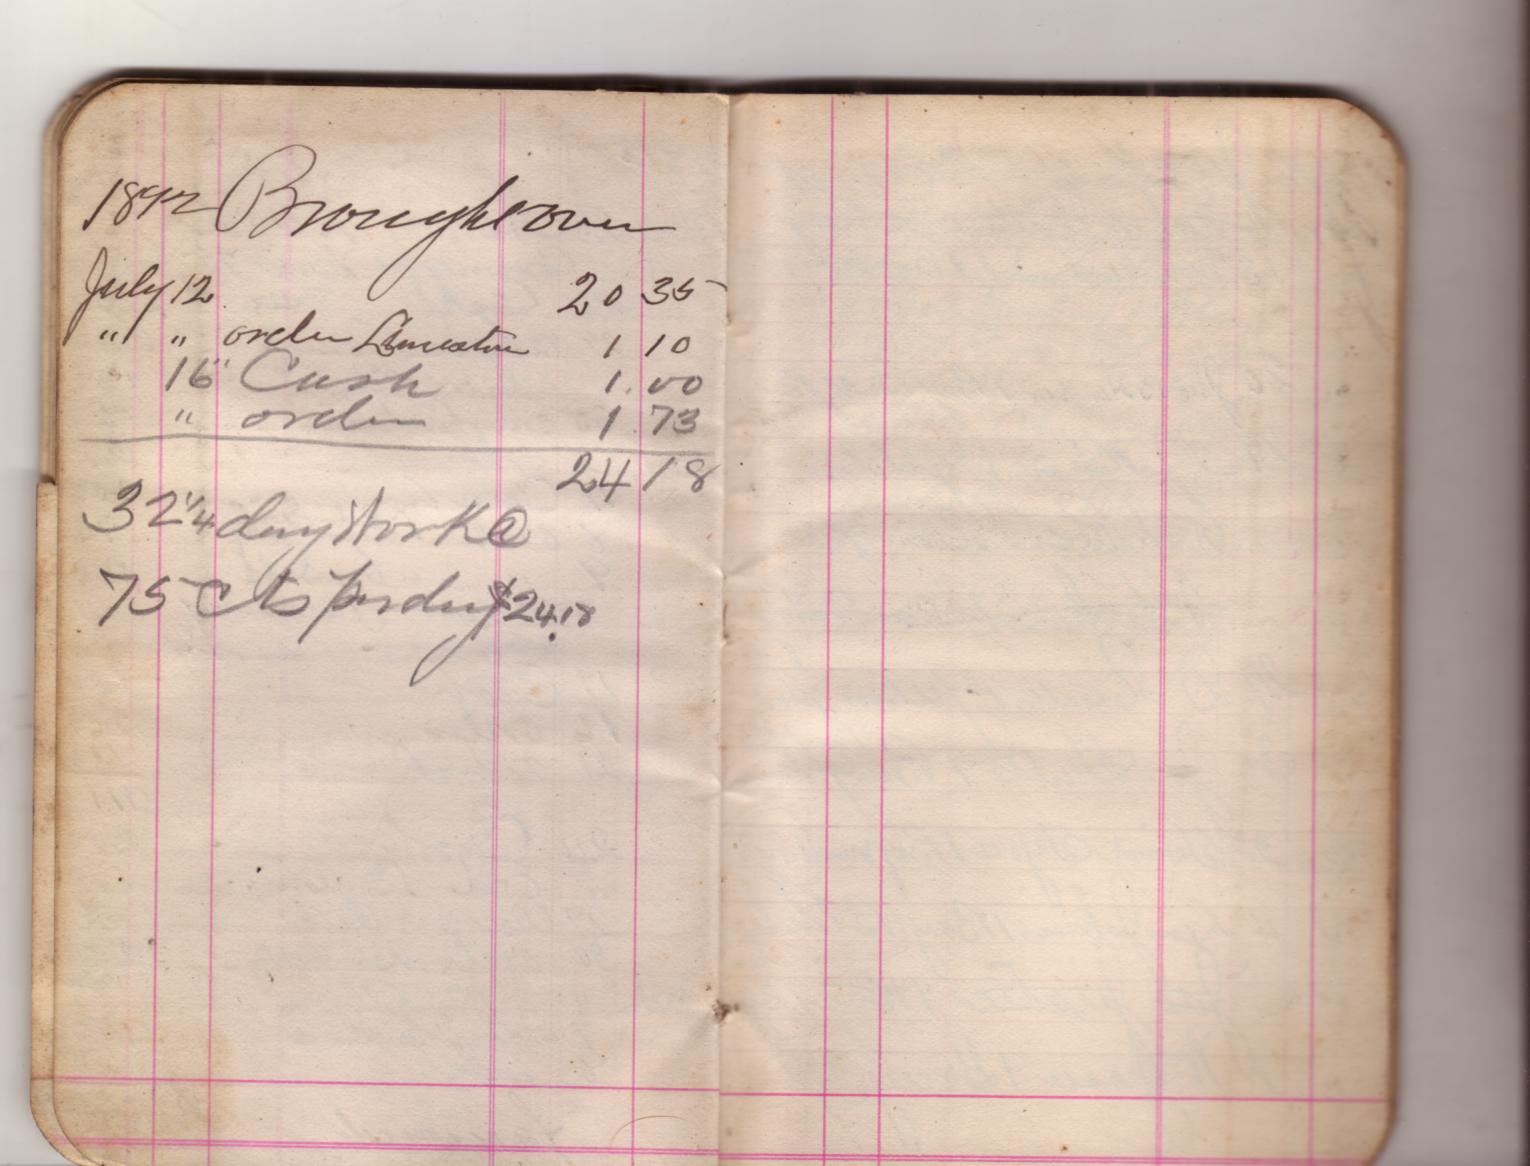 1892 Brought over
July 12 20 35
" " order Limestone 1 10
16" Cash 1.00
" order 1.73
24 18
32 1/4 day Work @
75 cts per day $24.18